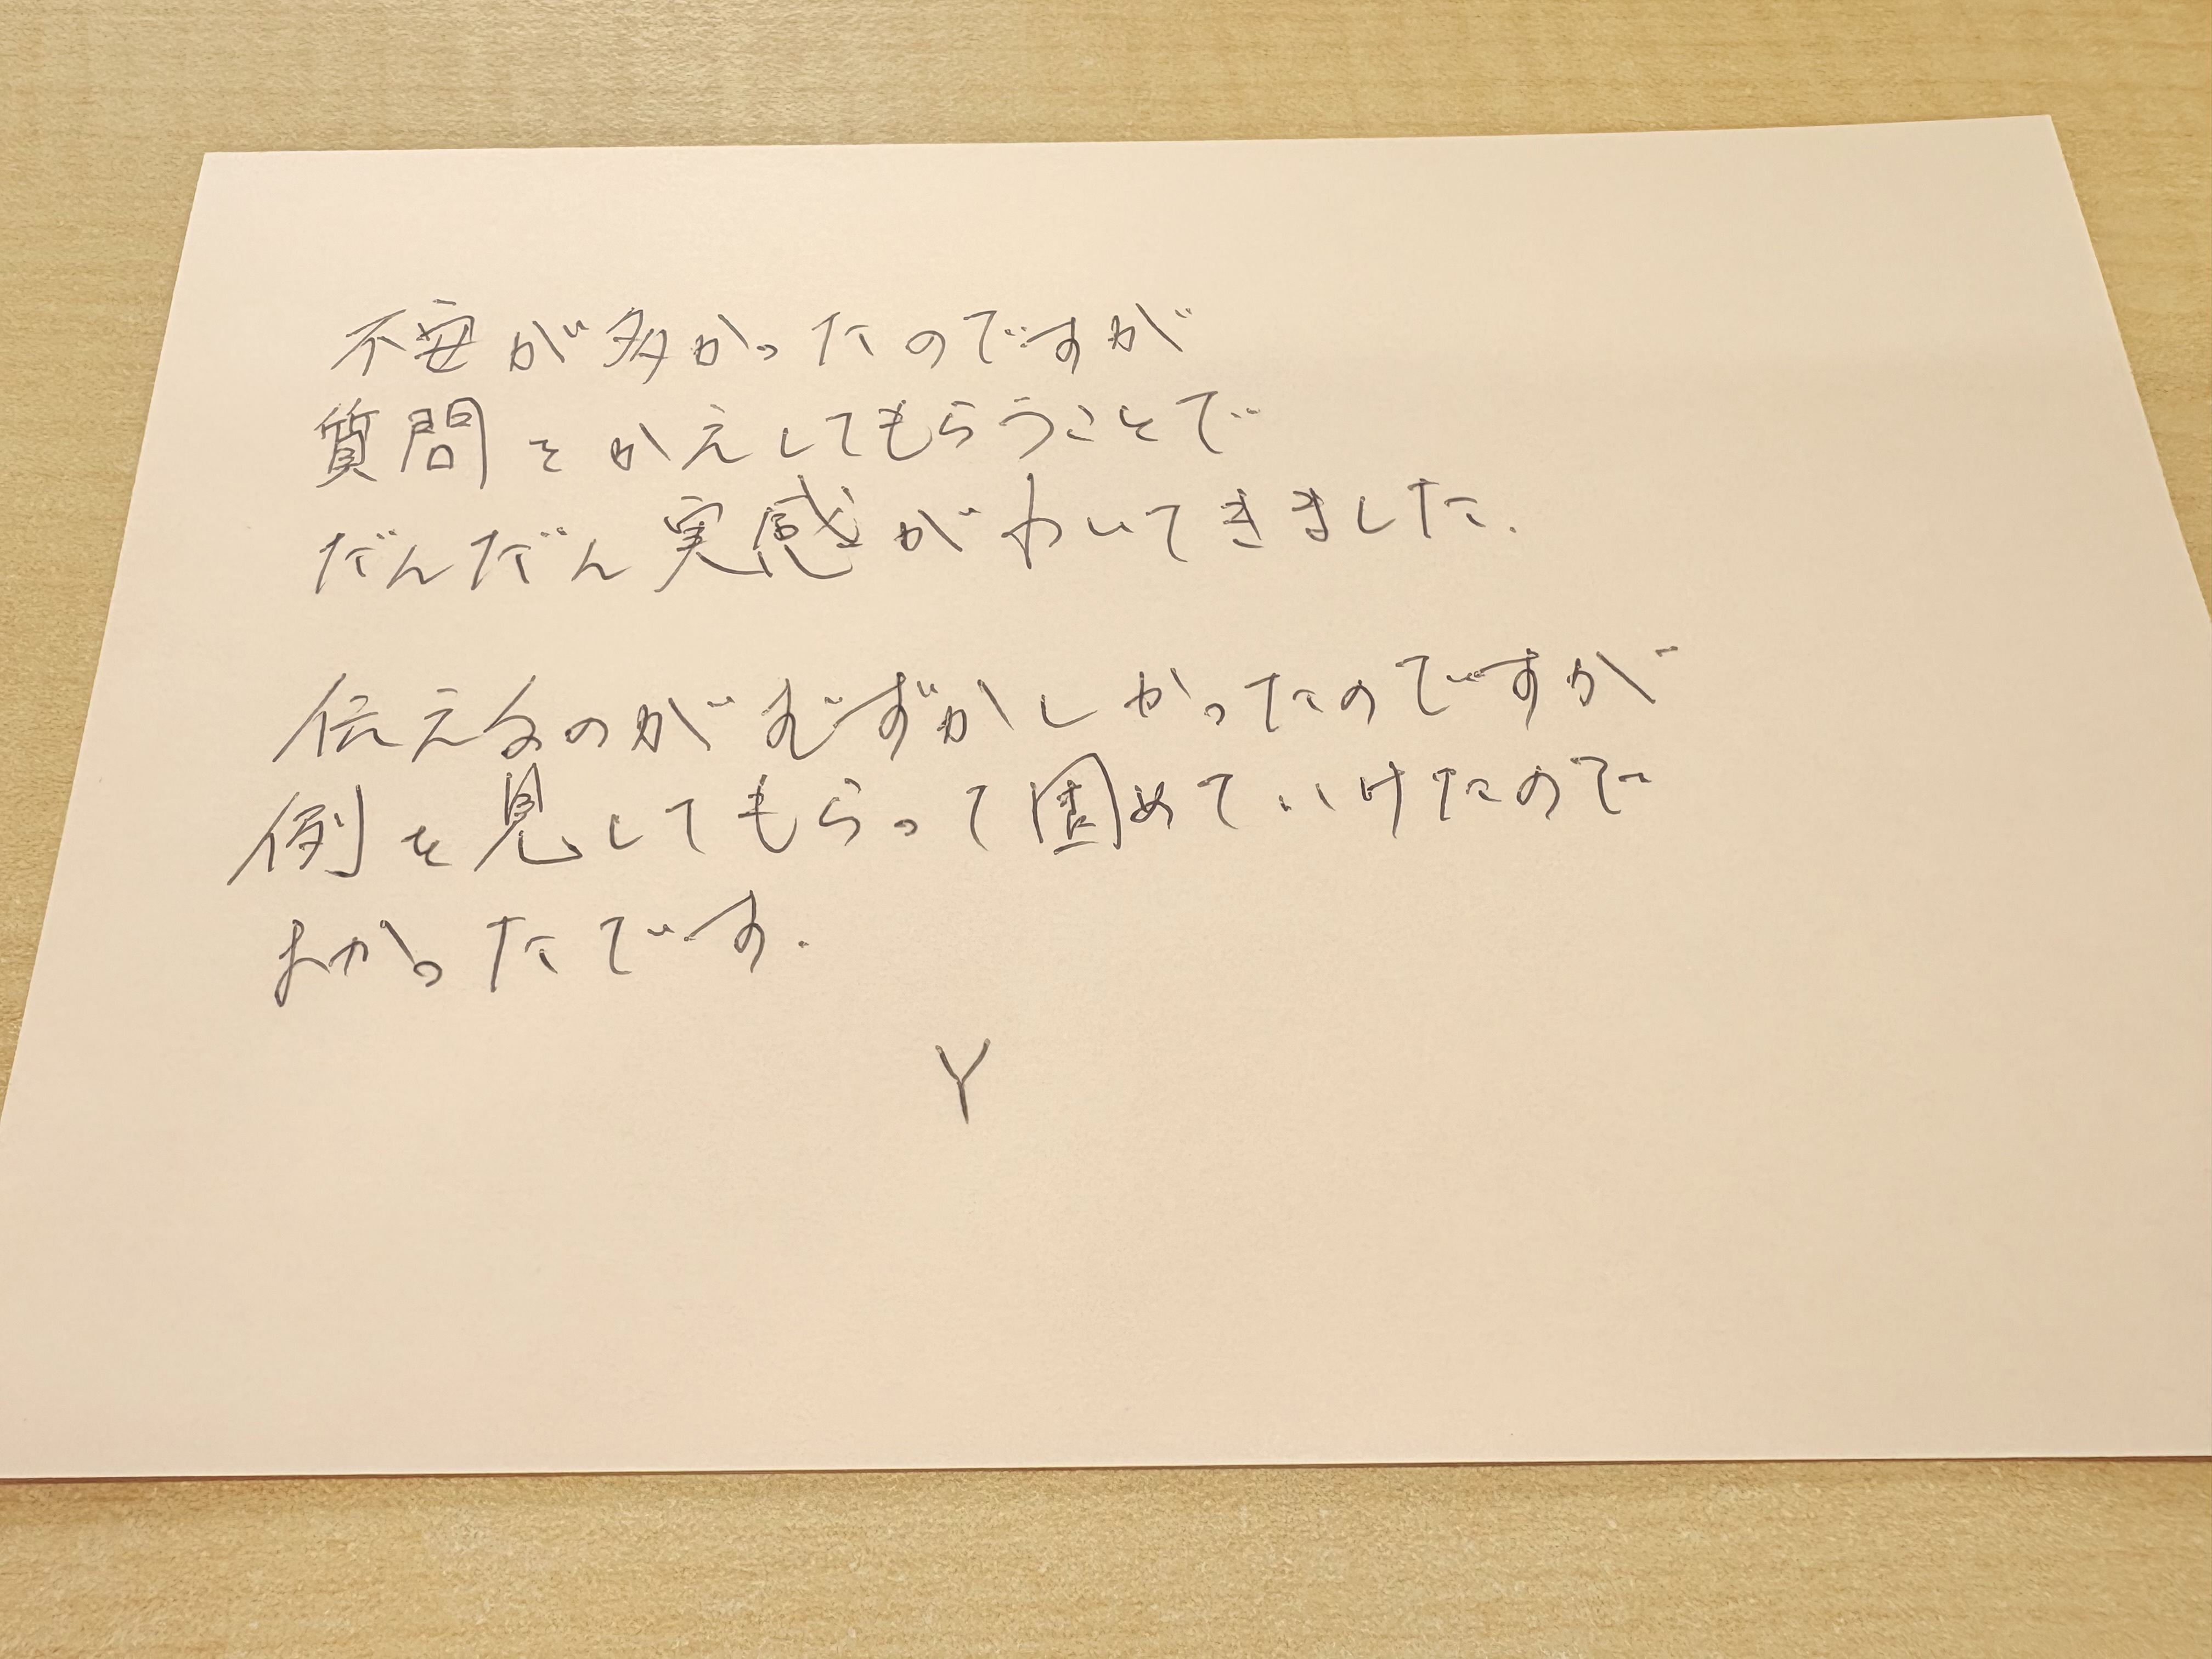 不安が多かったのですが
質問をかえしてもらうことで
だんだん実感がわいてきました.
伝えるのがむずかしかったのですが
例を見してもらって固めていけたので
よかったです.
Y